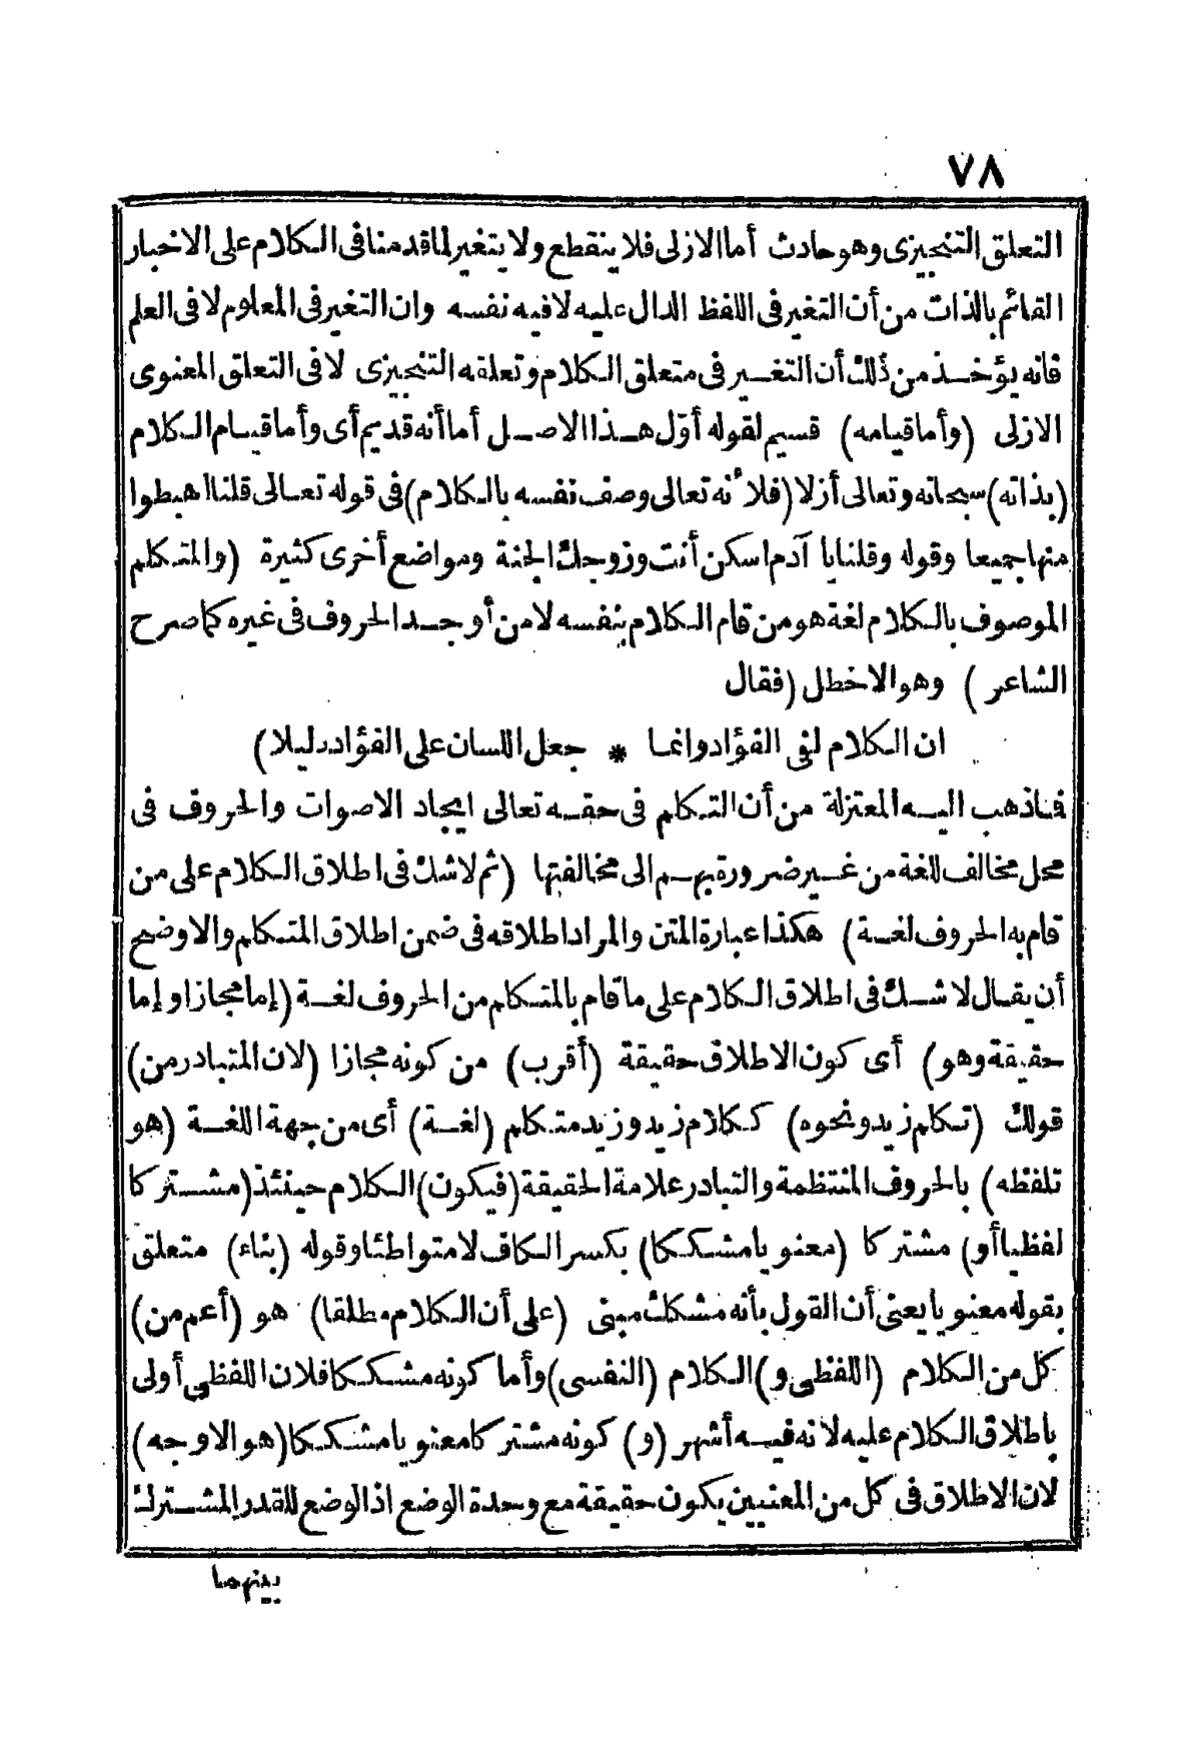 ٧٨
التعلق التنجيزى وهو حادث أما الازلى فلا ينقطع ولا يتغير لما قدمنا فى الكلام على الاخبار
القائم بالذات من أن التغير فى اللفظ الدال عليه لا فيه نفسه وان التغير فى المعلوم لا فى العلم
فانه يؤخذ من ذلك أن التغير فى متعلق الكلام وتعلقه التنجيزى لا فى التعلق المعنوى
الازلى (وأما قيامه) قسيم لقوله أوّل هذا الاصل أما أنه قديم أى وأما قيام الكلام
(بذاته) سبحانه وتعالى أزلا (فلأنه تعالى وصف نفسه بالكلام) فى قوله تعالى قلنا اهبطوا
منها جميعا وقوله وقلنا يا آدم اسكن أنت وزوجك الجنة ومواضع أخرى كثيرة (والمتكلم
الموصوف بالكلام لغة هو من قام الكلام بنفسه لا من أوجد الحروف فى غيره كما صرح
الشاعر) وهو الاخطل (فقال
ان الكلام لفى الفؤاد وانما * جعل اللسان على الفؤاد دليلا)
فما ذهب اليه المعتزلة من أن التكلم فى حقه تعالى ايجاد الاصوات والحروف فى
محل مخالف للغة من غير ضرورة بهم الى مخالفتها (ثم لا شك فى اطلاق الكلام على من
قام به الحروف لغة) هكذا عبارة المتن والمراد اطلاقه فى ضمن اطلاق المتكلم والاوضح
أن يقال لا شك فى اطلاق الكلام على ما قام بالمتكلم من الحروف لغة (إما مجازا وإما
حقيقة وهو) أى كون الاطلاق حقيقة (أقرب) من كونه مجازا (لان المتبادر من)
قولك (تكلم زيد ونحوه) ككلام زيد وزيد متكلم (لغة) أى من جهة اللغة (هو
تلفظه) بالحروف المنتظمة والتبادر علامة الحقيقة (فيكون) الكلام حينئذ (مشتركا
لفظيا أو) مشتركا (معنويا مشككا) بكسر الكاف لا متواطئا وقوله (بناء) متعلق
بقوله معنويا يعنى أن القول بأنه مشكك مبنى (على أن الكلام مطلقا) هو (أعم من)
كل من الكلام (اللفظى و) الكلام (النفسى) وأما كونه مشككا فلان اللفظى أولى
باطلاق الكلام عليه لانه فيه أشهر (و) كونه مشتركا معنويا مشككا (هو الاوجه)
لان الاطلاق فى كل من المعنيين يكون حقيقة مع وحدة الوضع اذ الوضع للقدر المشترك
بينهما